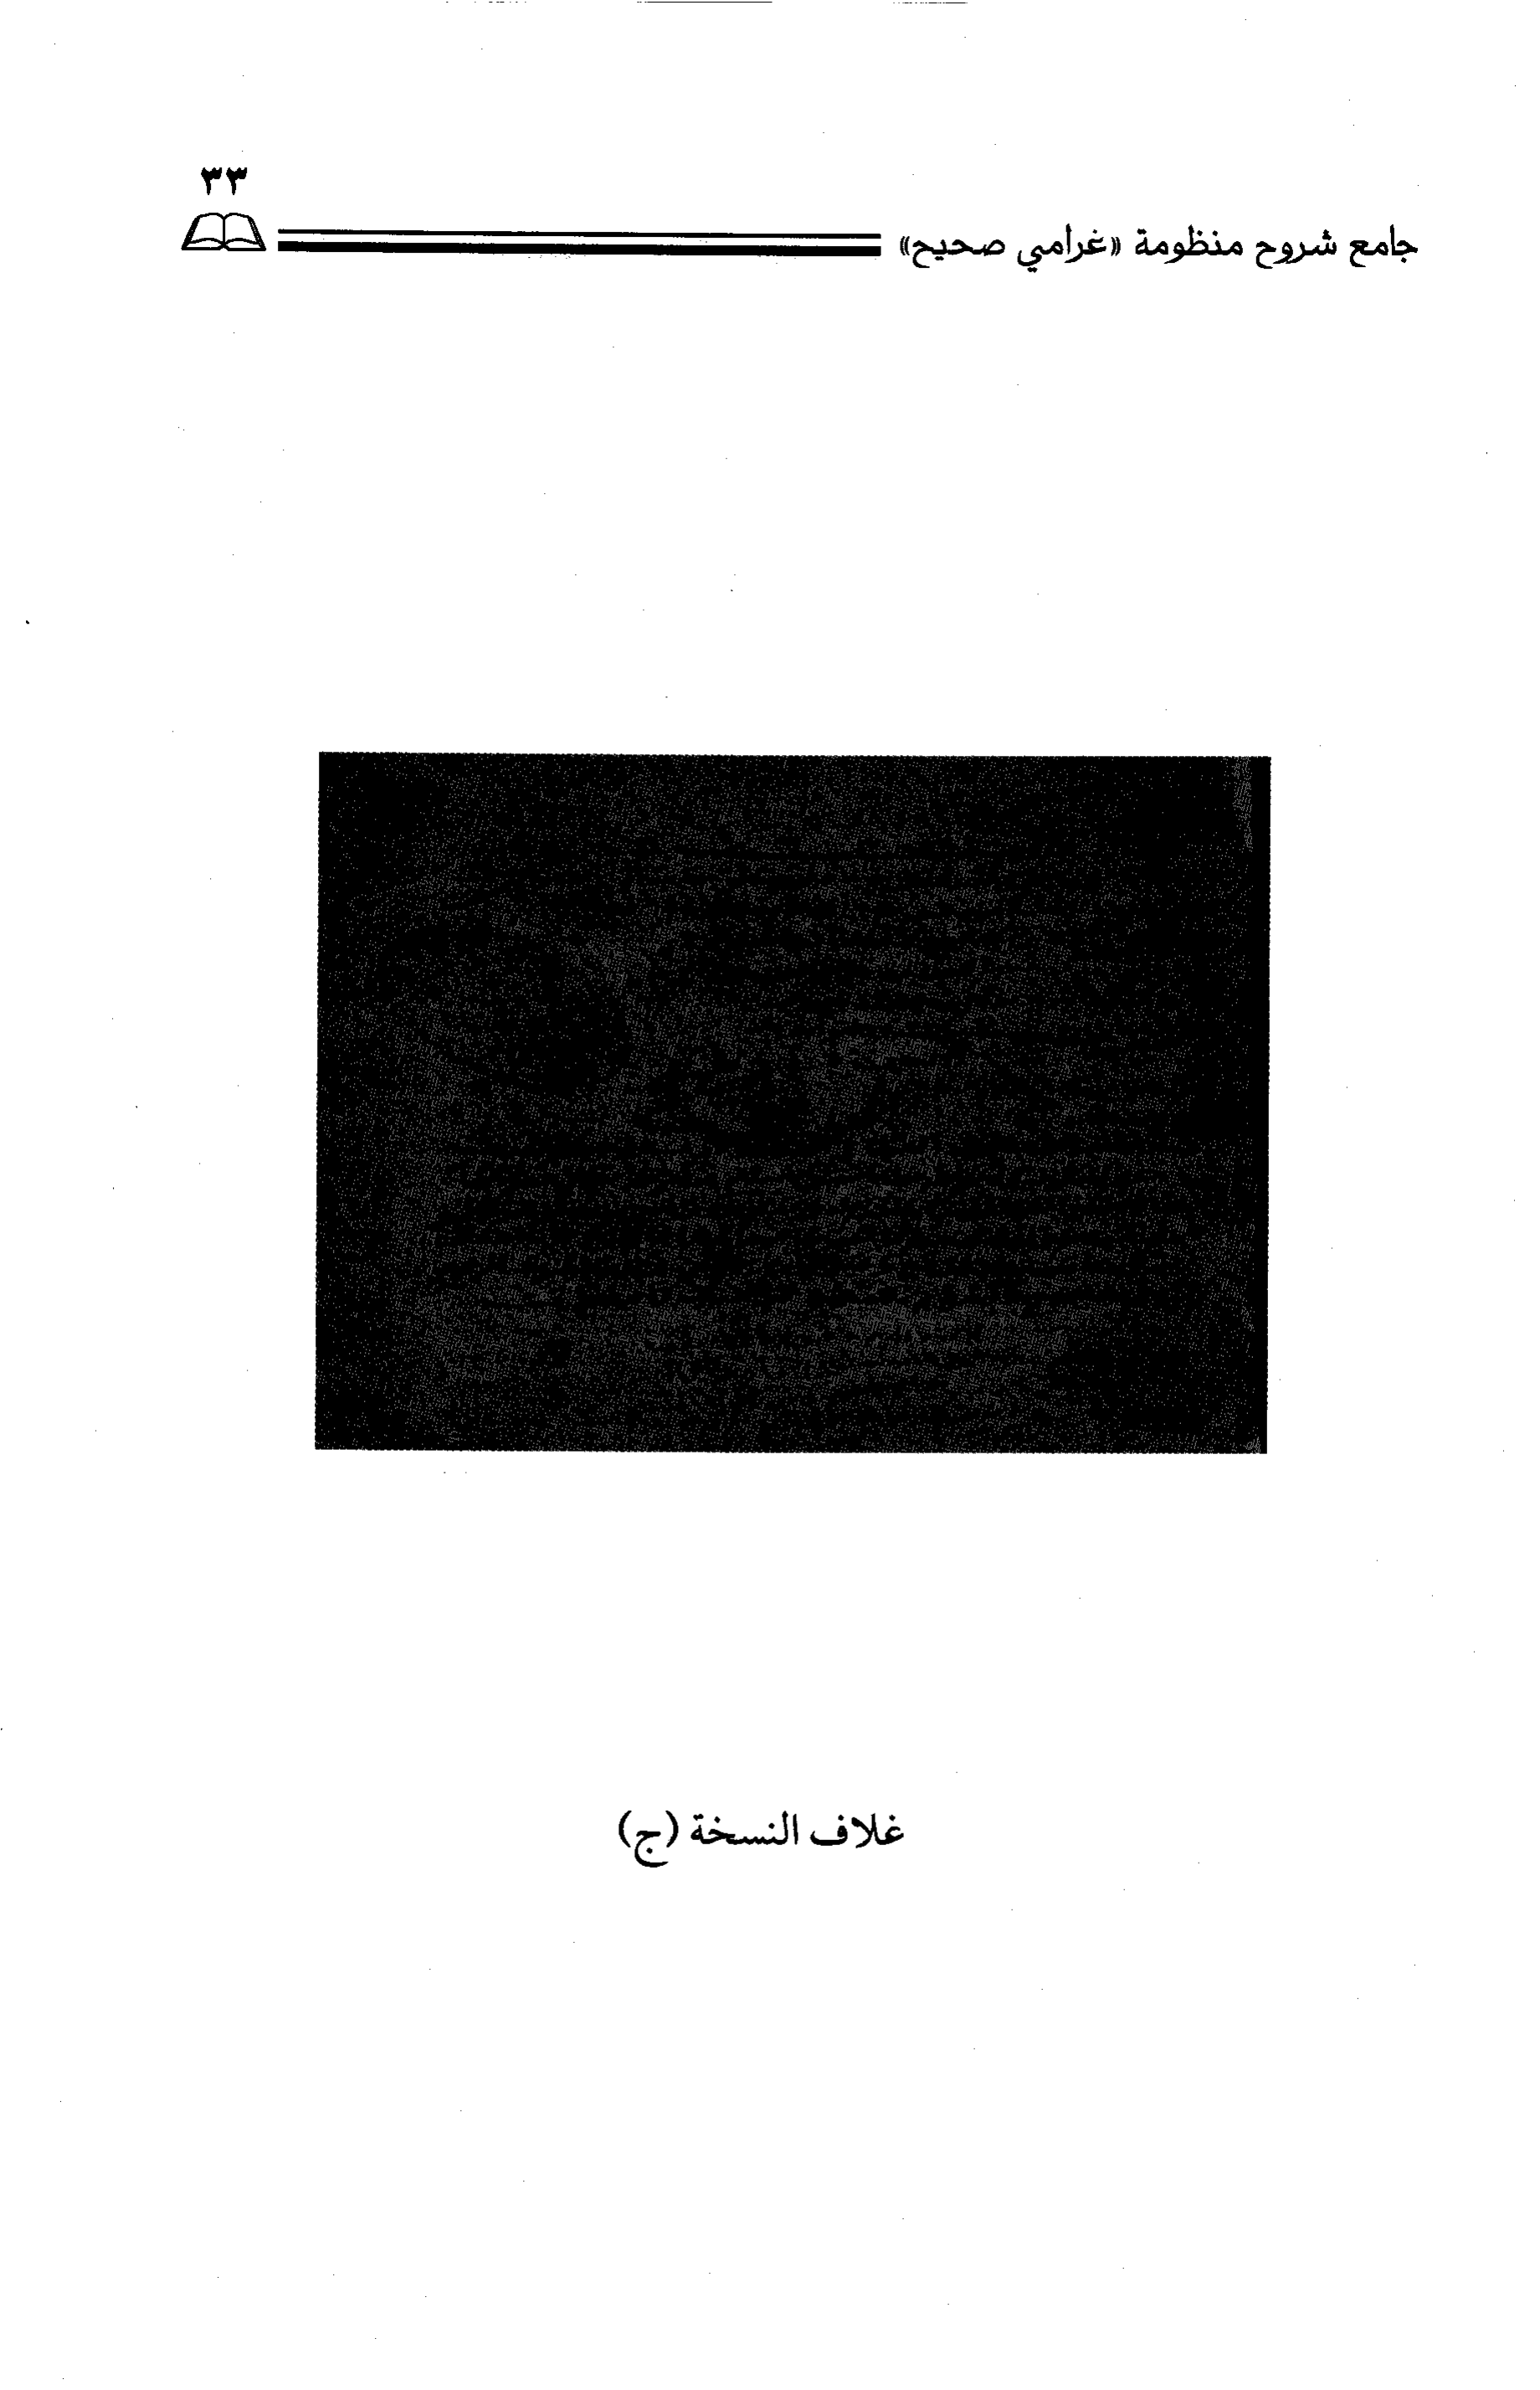 ٣٣
جامع شروح منظومة «غرامي صحيح»
غلاف النسخة (ج)